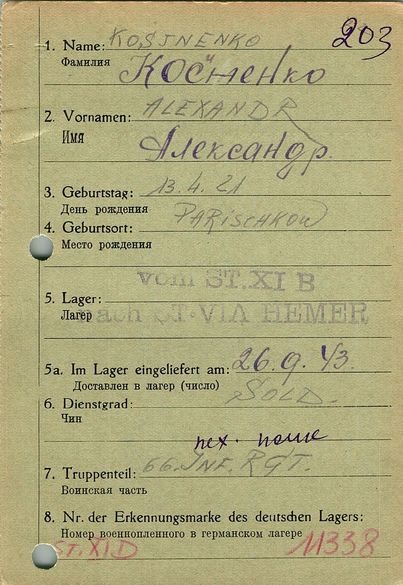 203
1. Name: KOSTNENKO
Фамилия Костненко
2. Vornamen: ALEXANDR
Имя Александр.
3. Geburtstag: 13.4.21
День рождения
4. Geburtsort: PARISCHKOW
Место рождения
vom ST. XI B
5. Lager:
Лагер nach ST. VIA HEMER
5a. Im Lager eingeliefert am: 26.9.43.
Доставлен в лагер (число)
6. Dienstgrad: SOLD.
Чин
7. Truppenteil: 66. INF. RGT.
Воинская часть
8. Nr. der Erkennungsmarke des deutschen Lagers:
Номер военнопленного в германском лагере
ST. XID 11338